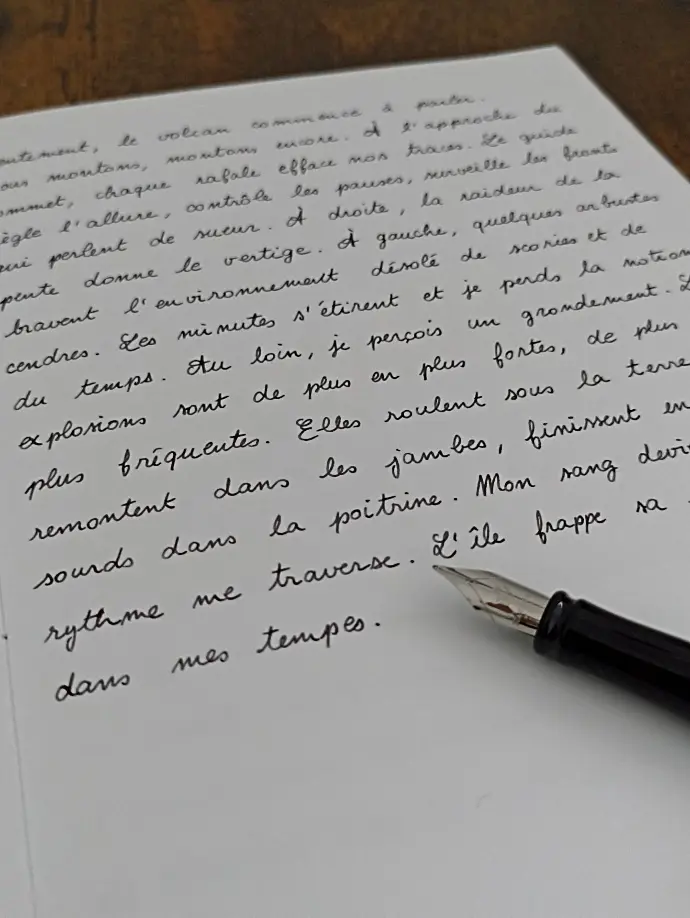 le volcan commence à parler.
montons, montons encore. À l'approche du
chaque rafale efface nos traces. Le guide
l'allure, contrôle les pauses, surveille les fronts
qui perlent de sueur. À droite, la raideur de la
pente donne le vertige. À gauche, quelques arbustes
bravent l'environnement désolé de scories et de
cendres. Les minutes s'étirent et je perds la notion
du temps. Au loin, je perçois un grondement.
explosions sont de plus en plus fortes, de plus
plus fréquentes. Elles roulent sous la terre
remontent dans les jambes, finissent en
sourds dans la poitrine. Mon sang
rythme me traverse. L'île frappe sa
dans mes tempes.